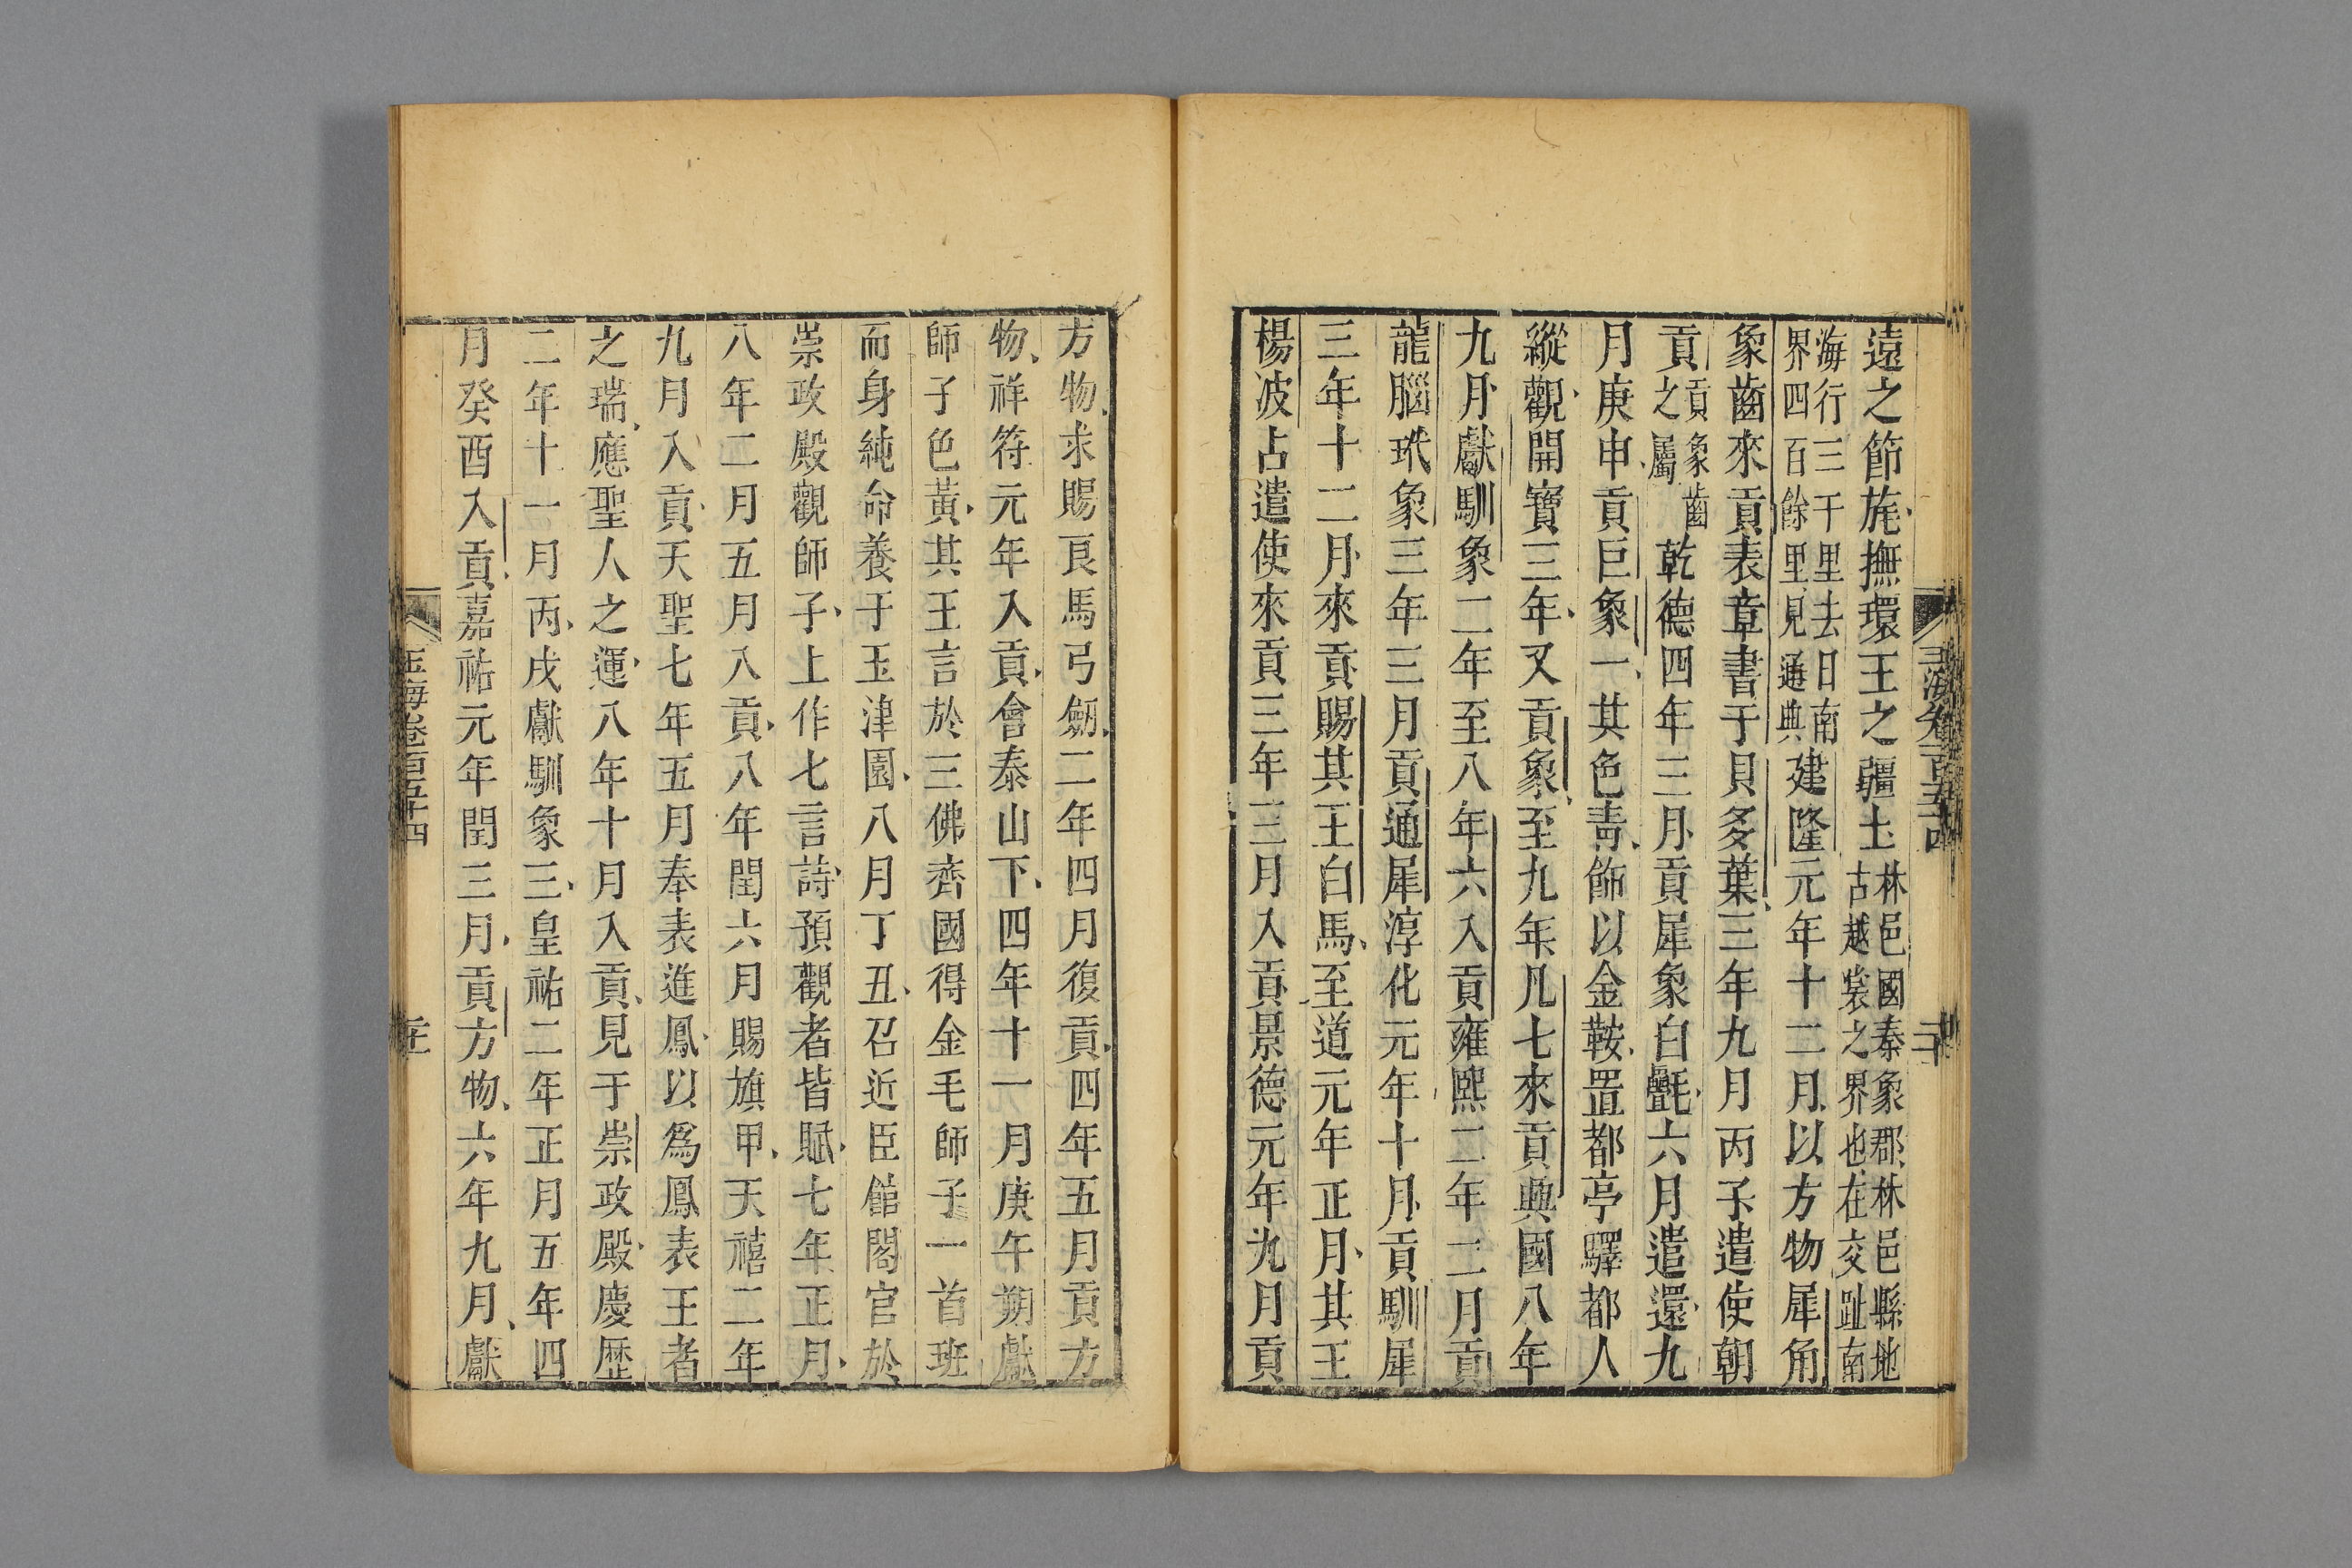 遠之節旄撫環王之疆土林邑國秦象郡林邑縣地古越裳之界也在交趾南
海行三千里去日南界四百餘里見通典建隆元年十二月以方物犀角
象齒來貢表章書于貝多葉三年九月丙子遣使朝
貢貢象齒之屬乾德四年三月貢犀象白氎六月遣還九
月庚申貢巨象一其色青飾以金鞍置都亭驛都人
縱觀開寶三年又貢象至九年凡七來貢興國八年
九月獻馴象二年至八年六入貢雍熙二年二月貢
龍腦玳象三年三月貢通犀淳化元年十月貢馴犀
三年十二月來貢賜其王白馬至道元年正月其王
楊波占遣使來貢三年三月入貢景德元年九月貢
方物求賜良馬弓劒二年四月復貢四年五月貢方
物祥符元年入貢會泰山下四年十一月庚午朔獻
師子色黃其王言於三佛齊國得金毛師子一首班
而身純命養于玉津園八月丁丑召近臣館閣官於
崇政殿觀師子上作七言詩預觀者皆賦七年正月
八年二月五月入貢八年閏六月賜旗甲天禧二年
九月入貢天聖七年五月奉表進鳳以為鳳表王者
之瑞應聖人之運八年十月入貢見于崇政殿慶歷
二年十一月丙戌獻馴象三皇祐二年正月五年四
月癸酉入貢嘉祐元年閏三月貢方物六年九月獻
玉海卷百五十四